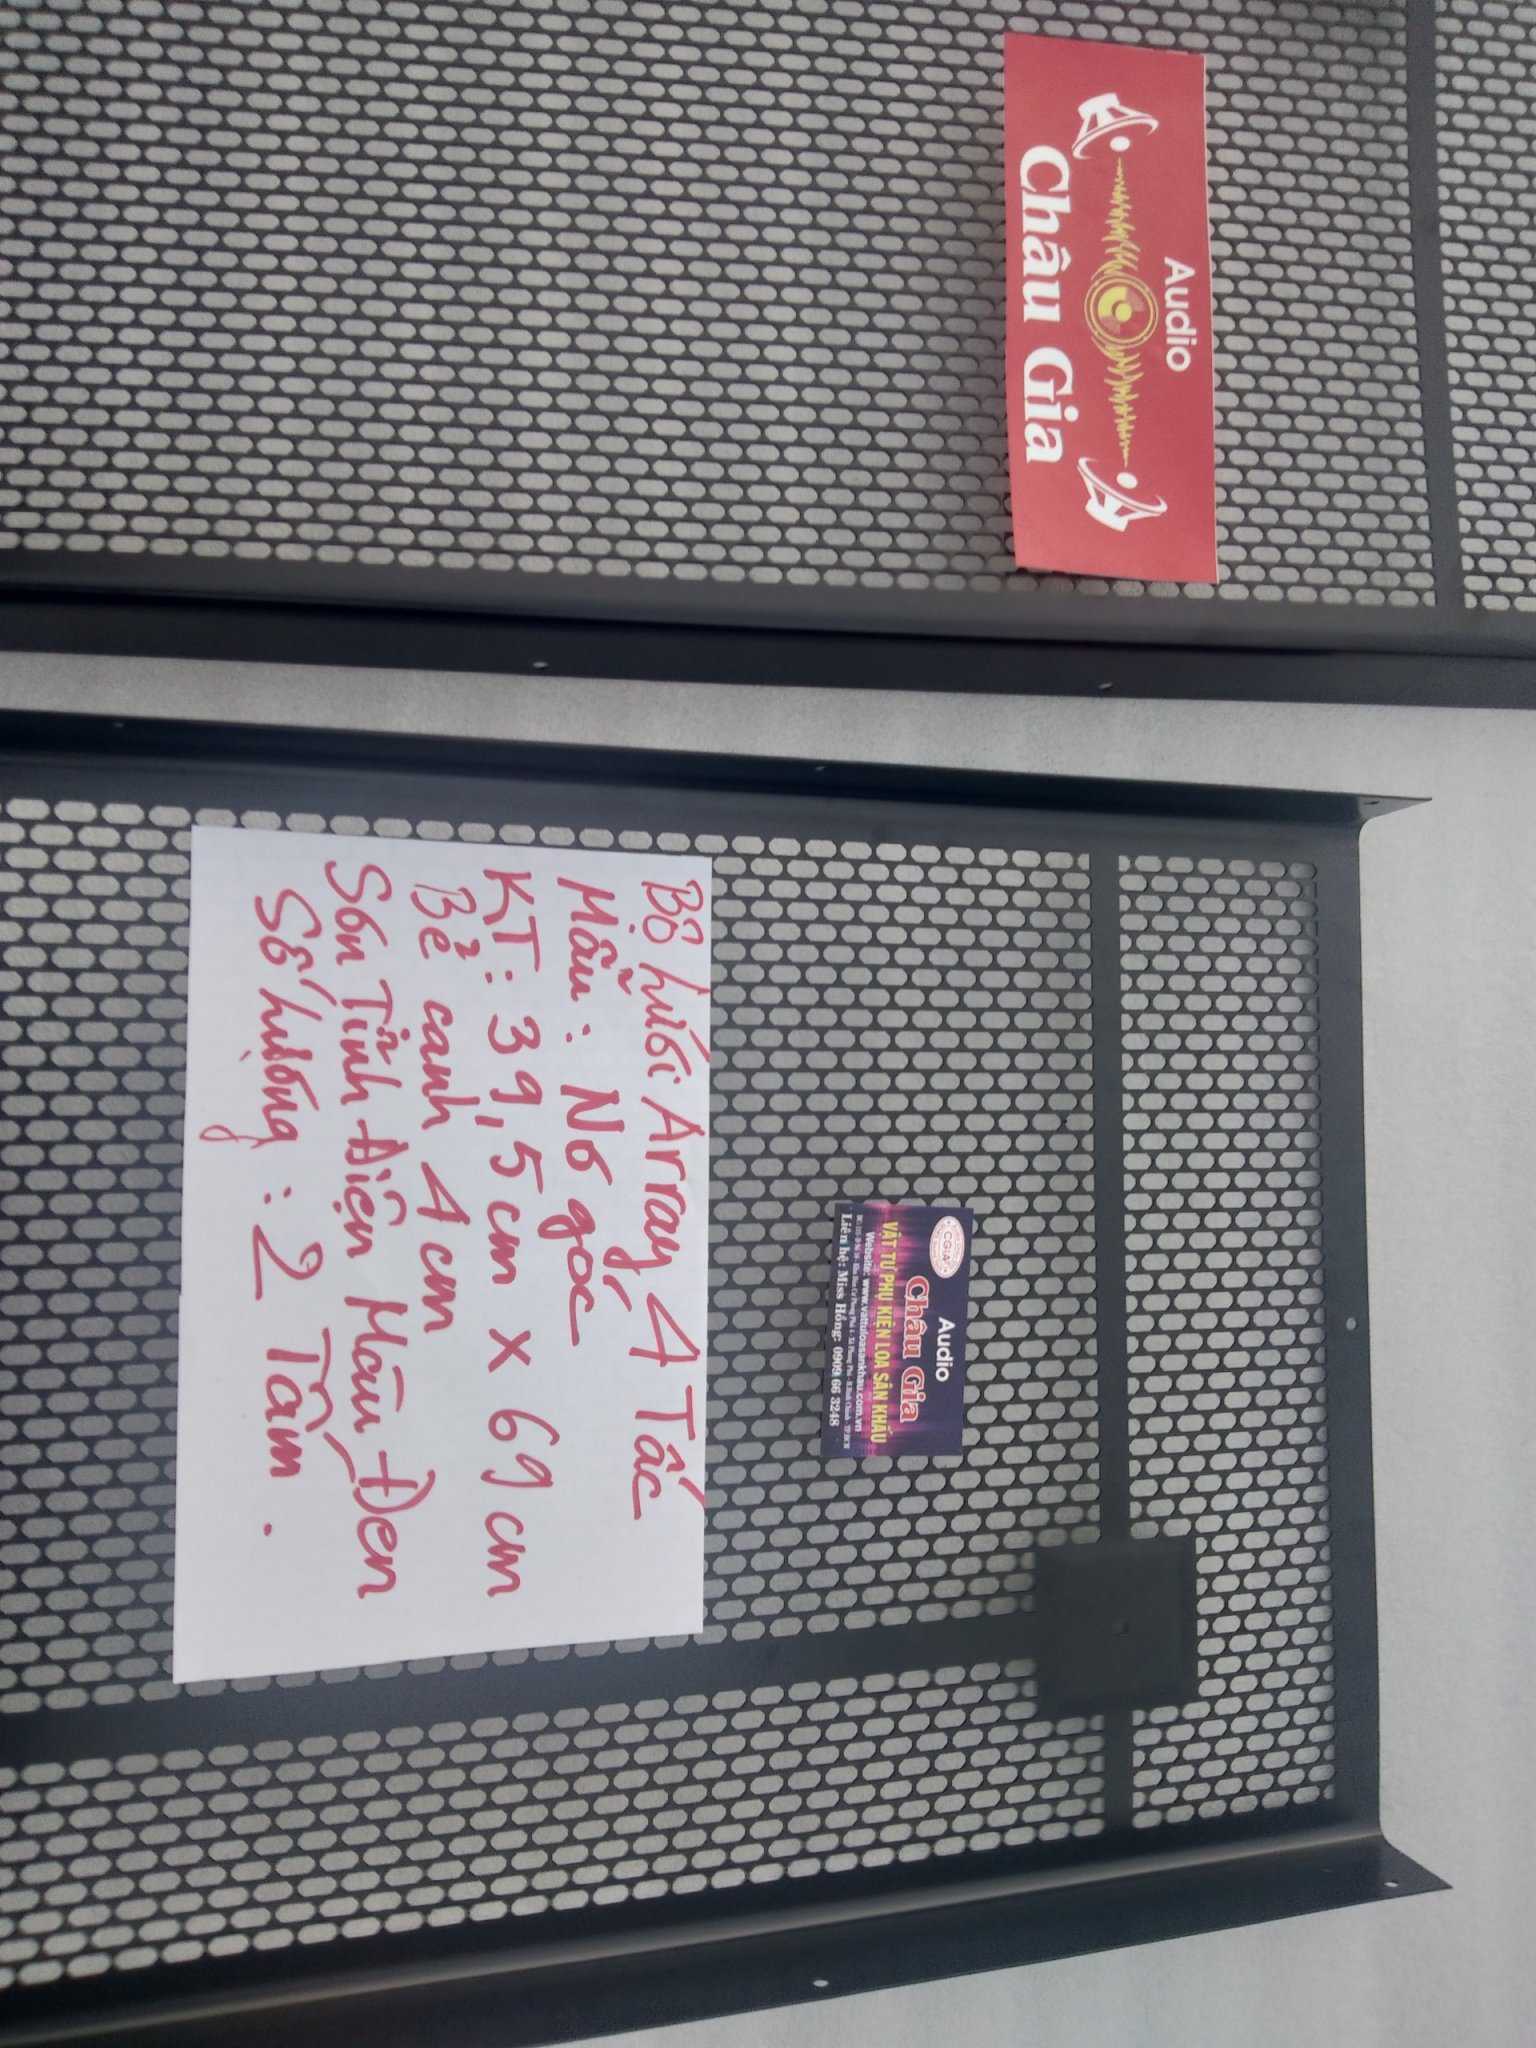 Audio
Châu Gia
Bộ lưới Array 4 Tấc
Mẫu: Nơ góc
KT: 39,5cm x 69cm
Bẻ cạnh 4cm
Sơn Tĩnh Điện Màu Đen
Số lượng: 2 Tấm.
CGIA
Audio
Châu Gia
VẬT TƯ PHỤ KIỆN LOA SÂN KHẤU
Website: www.vattuloasankhau.com.vn
Liên hệ: Miss Hồng: 0909 66 3248